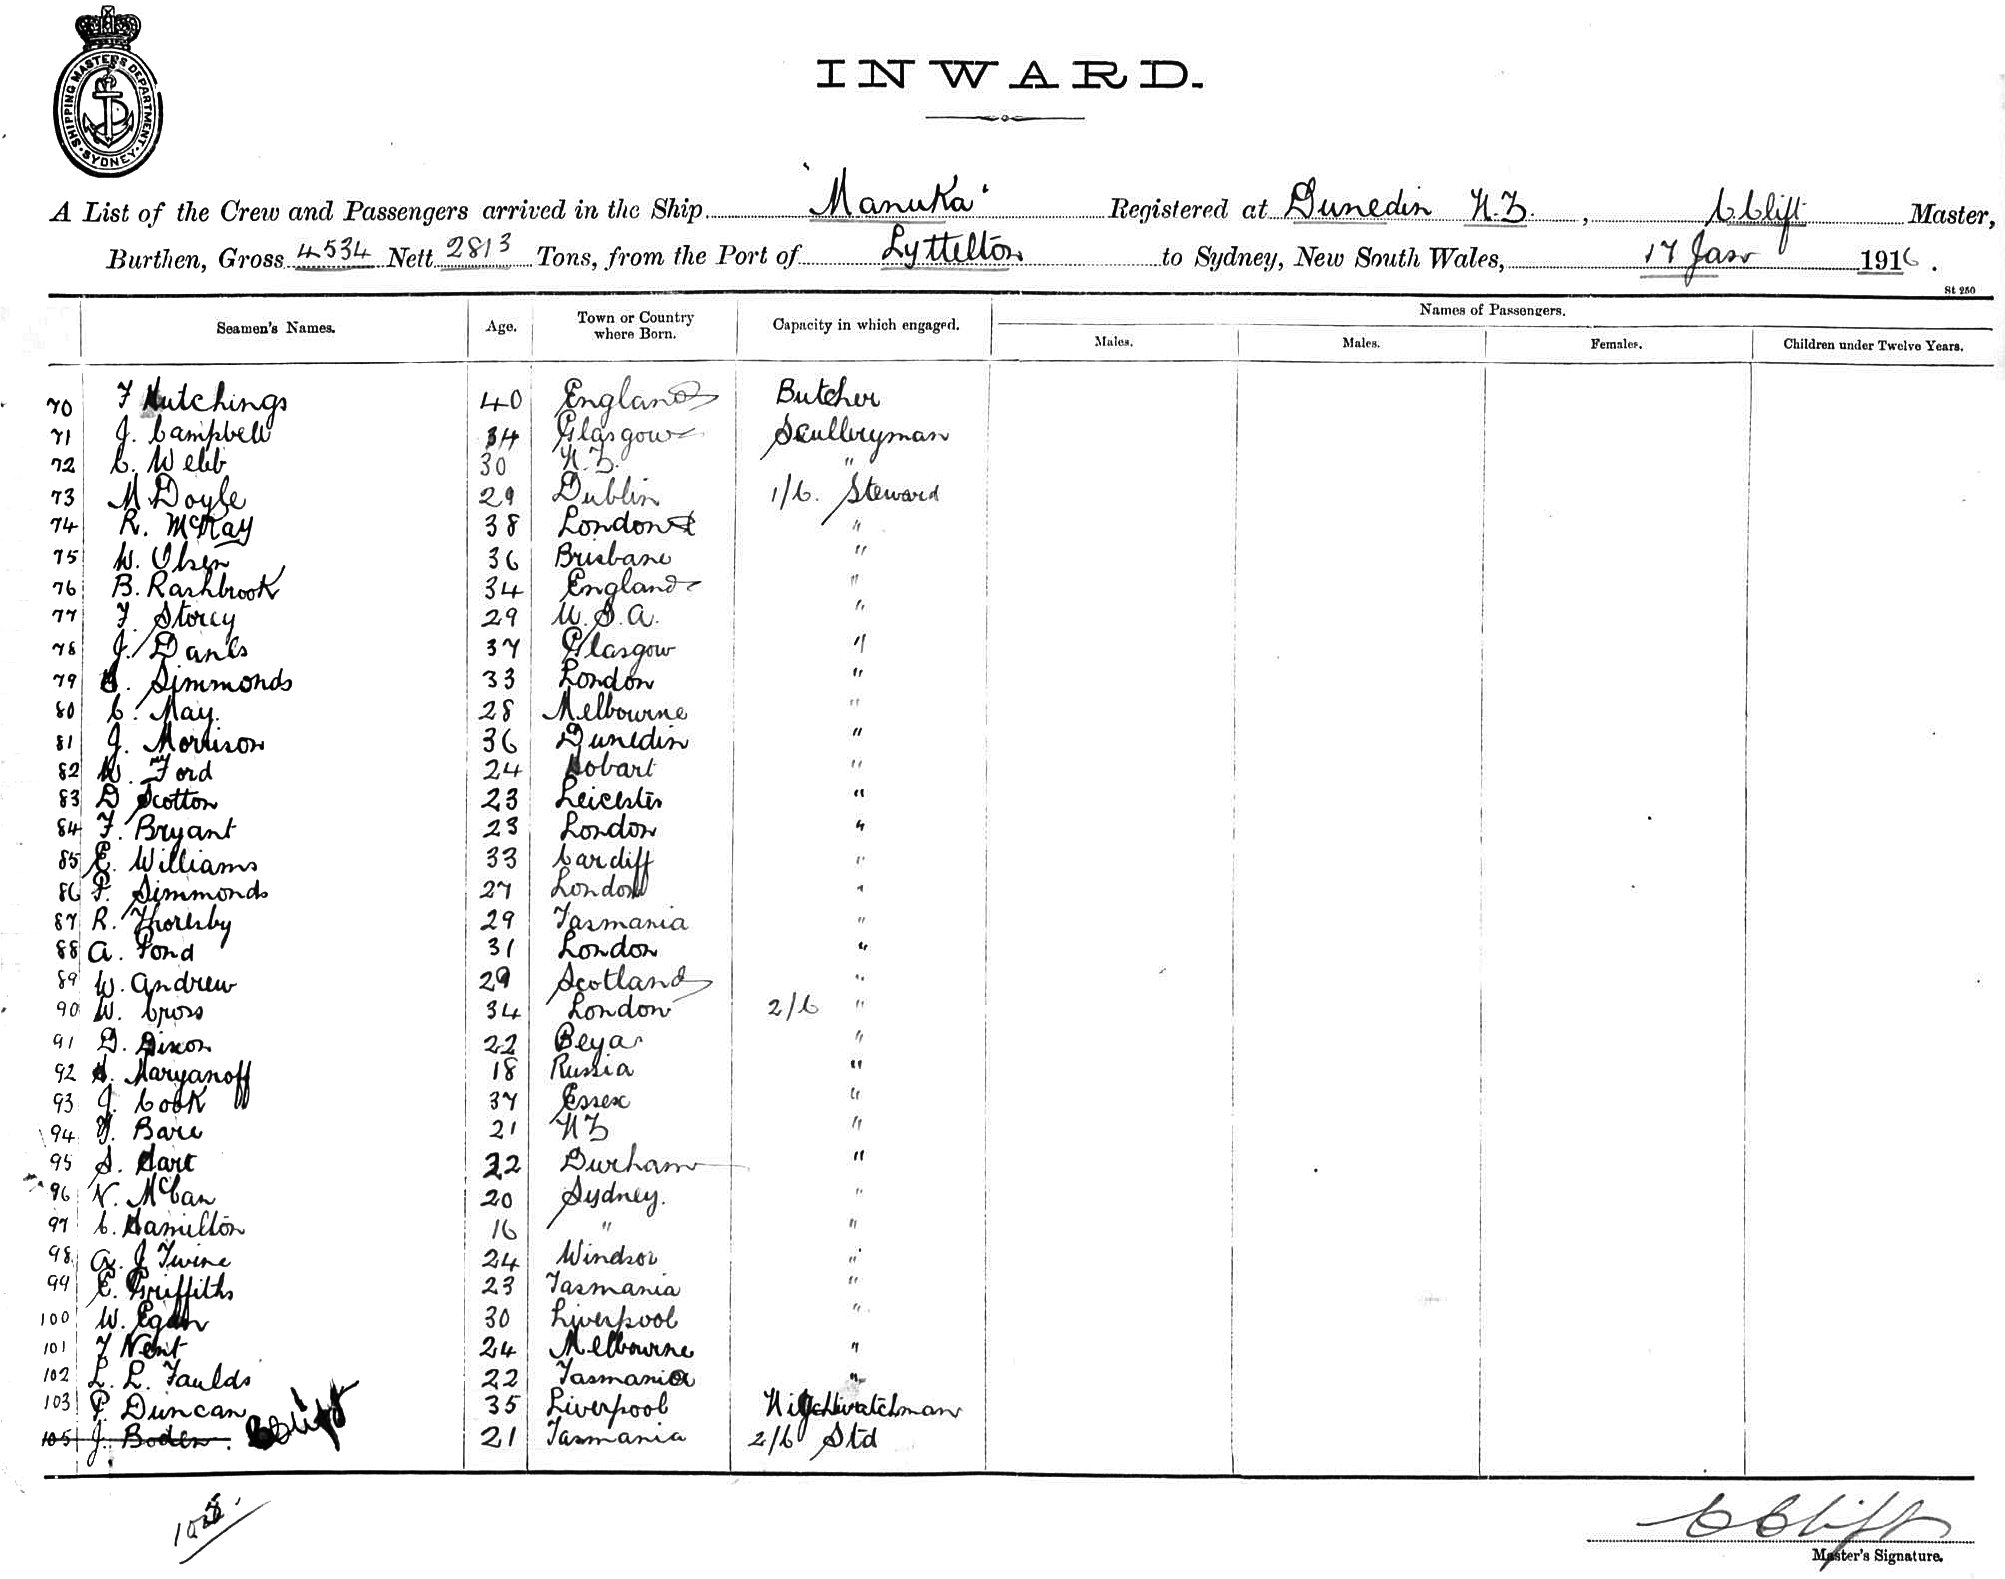 SHIPPING MASTER'S DEPARTMENT. SYDNEY
INWARD.
A List of the Crew and Passengers arrived in the Ship "Manuka" Registered at Dunedin N.Z., C Clift Master,
Burthen, Gross 4534 Nett 2813 Tons, from the Port of Lyttelton to Sydney, New South Wales, 17 Jany 1916.
St 250
Seamen's Names. Age. Town or Country where Born. Capacity in which engaged. Names of Passengers.
Males. Males. Females. Children under Twelve Years.
70 F Hutchings 40 England Butcher
71 J. Campbell 34 Glasgow Sculleryman
72 C. Webb 30 N.Z. "
73 M Doyle 29 Dublin 1/C. Steward
74 R. McKay 38 London "
75 W. Olsen 36 Brisbane "
76 B. Rashbrook 34 England "
77 F. Storey 29 U.S.A. "
78 J. Danks 37 Glasgow "
79 Simmonds 33 London "
80 C. May. 28 Melbourne "
81 J. Morrison 36 Dunedin "
82 W. Ford 24 Hobart "
83 D Scotton 23 Leicester "
84 F. Bryant 23 London "
85 E. Williams 33 Cardiff "
86 P. Simmonds 27 London "
87 R. Thoresby 29 Tasmania "
88 A. Pond 31 London "
89 W. Andrew 29 Scotland "
90 W. Cross 34 London 2/C "
91 D. Dixon 22 "
92 Maryanoff 18 Russia "
93 J. Cook 37 Essex "
94 Bare 21 NZ "
95 S. Hart 22 Durham "
96 N. McCan 20 Sydney. "
97 C. Hamilton 16 " "
98 A. J Twine 24 Windsor "
99 E. Griffiths 23 Tasmania "
100 W. Egan 30 Liverpool "
101 Nent 24 Melbourne "
102 L. L. Faulds 22 Tasmania "
103 P Duncan 35 Liverpool Nightwatchman
105 J. Boden. CClift 21 Tasmania 2/C Std
C Clift
Master's Signature.